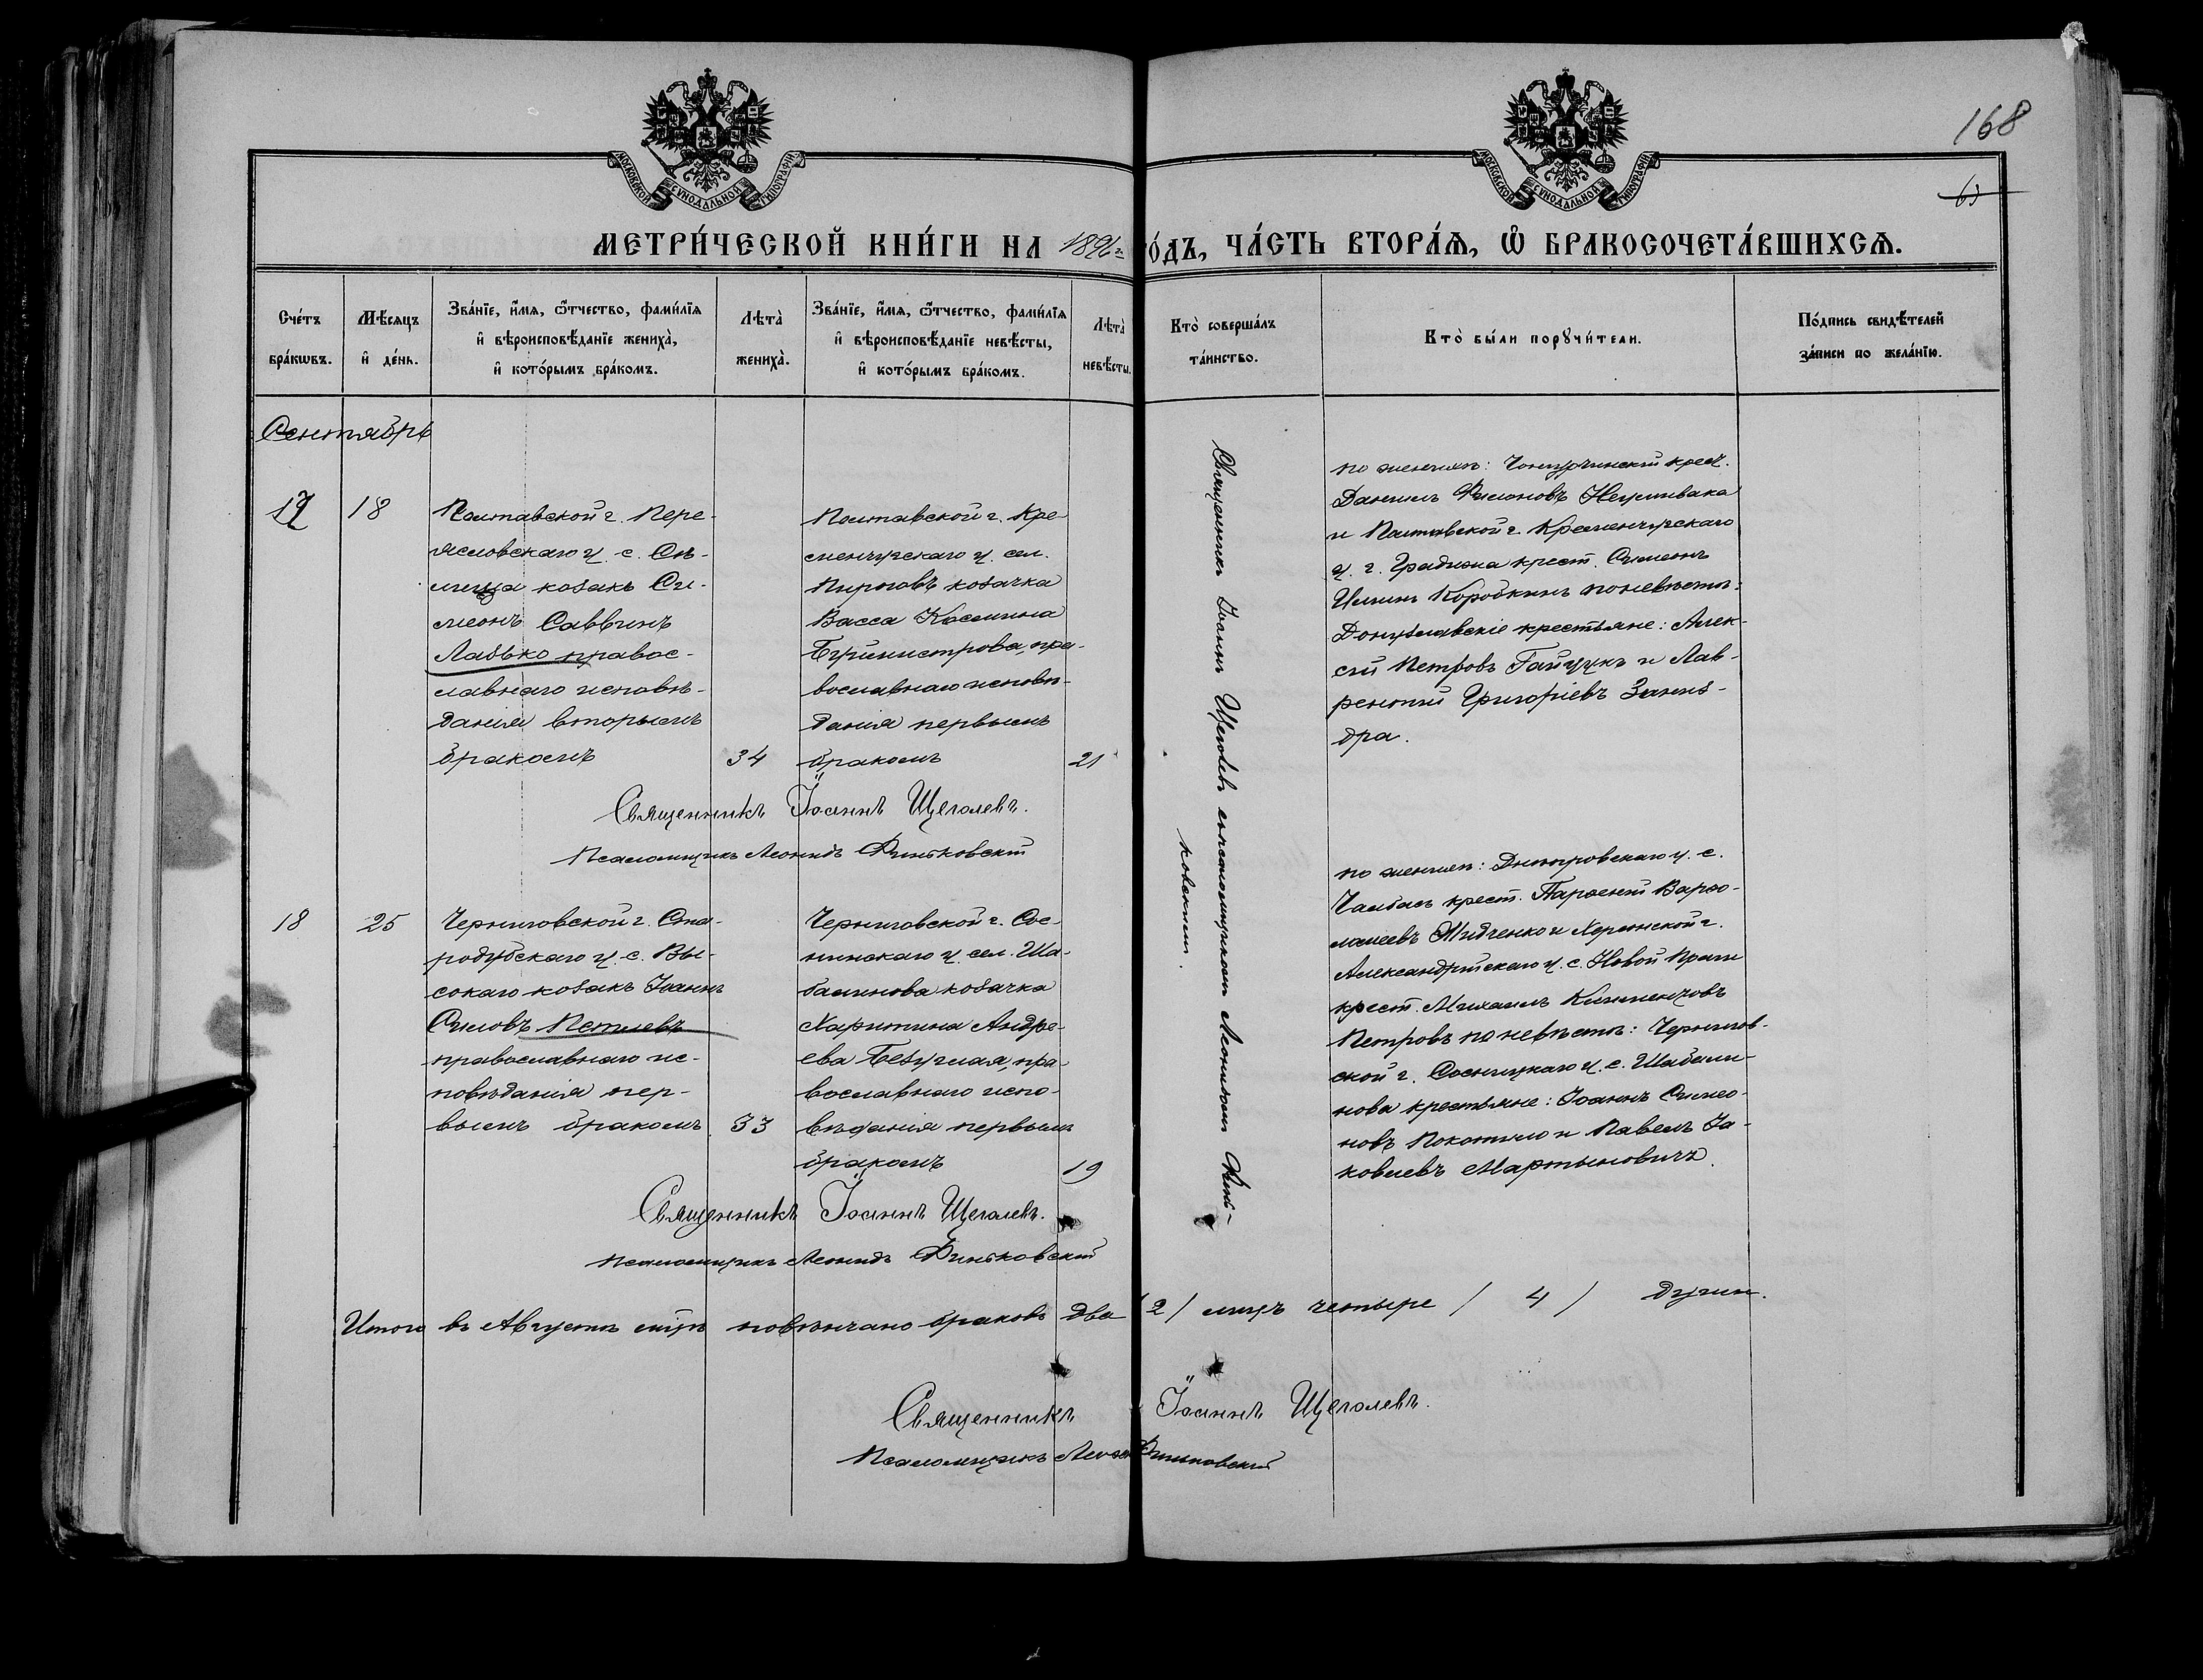 168
МОСКОВСКОЙ СѴНОДАЛЬНОЙ ТИПОГРАФІИ
МОСКОВСКОЙ СѴНОДАЛЬНОЙ ТИПОГРАФІИ
МЕТРИ́ЧЕСКОЙ КНИ́ГИ НА 1896 г. ГО́ДЪ, ЧА́СТЬ ВТОРА́Я, Ѽ БРАКОСОЧЕТА́ВШИХСЯ.
Сче́тъ бра́кѡвъ.
Мѣ́сяцъ и҆ де́нь.
Зва́нїе, и҆́мя, ѻ҆́тчество, фами́лїя и҆ вѣроисповѣ́данїе жениха̀, и҆ кото́рымъ бра́комъ.
Лѣта̀ жениха̀.
Зва́нїе, и҆́мя, ѻ҆́тчество, фами́лїя и҆ вѣроисповѣ́данїе невѣ́сты, и҆ кото́рымъ бра́комъ.
Лѣта̀ невѣ́сты.
Кто̀ соверша́лъ та́инство.
Кто̀ бы́ли порꙋчи́тели.
По́дпись свидѣ́телей за́писи по жела́нїю.
Сентябрь
17
18
Полтавской г. Пере-
яславскаго у. с. Сѣ-
мяча козакъ Си-
меонъ Саввинъ
Лазько правос-
лавнаго исповѣ-
данія вторымъ
бракомъ
34
Полтавской г. Кре
менчугскаго у. сел.
Пироговъ козачка
Васса Космина
Бурминстрова, пра-
вославнаго исповѣ-
данія первымъ
бракомъ
21
Священникъ Іоаннъ Щеголевъ съ псаломщикомъ Леонидомъ Финь-
ковскимъ.
по женихѣ: Чонгурчинскій крест.
Даніилъ Филоновъ Нечитвака
и Полтавской г. Кременчугскаго
у. г. Градижа крест. Симеонъ
Ильинъ Коробкинъ по невѣстѣ:
Донузлавскіе крестьяне: Алек-
сѣй Петровъ Гайчукъ и Лав-
рентій Григоріевъ
Священникъ Іоаннъ Щеголевъ.
Псаломщикъ Леонидъ Финьковскій
18
25
Черниговской г. Ста-
родубскаго у. с. Вы-
сокаго козакъ Іоаннъ
Силовъ Петлевъ
православнаго ис-
повѣданія пер-
вымъ бракомъ
33
Черниговской г. Сос-
ницкаго у. сел. Ша-
балинова козачка
Харитина Андре-
ева Безуглая, пра-
вославнаго испо-
вѣданія первымъ
бракомъ
19
по женихѣ: Днѣпровскаго у. с.
Чалбасъ крест. Парѳеній Варѳо-
ломеевъ Мидченко и Херсонской г.
Александрійскаго у. с. Новой Праги
крест. Михаилъ
Петровъ по невѣстѣ: Чернигов-
ской г. Сосницкаго у. с. Шабали-
нова крестьяне: Іоаннъ Симео-
новъ Покотило и Павелъ Іа-
ковлевъ Мартыновичъ.
Священникъ Іоаннъ Щеголевъ.
Псаломщикъ Леонидъ Финьковскій
Итого въ Августѣ м-цѣ повѣнчано браковъ два /2/ лицъ четыре / 4 / душъ.
Священникъ Іоаннъ Щеголевъ.
Псаломщикъ Леон Финьковскій